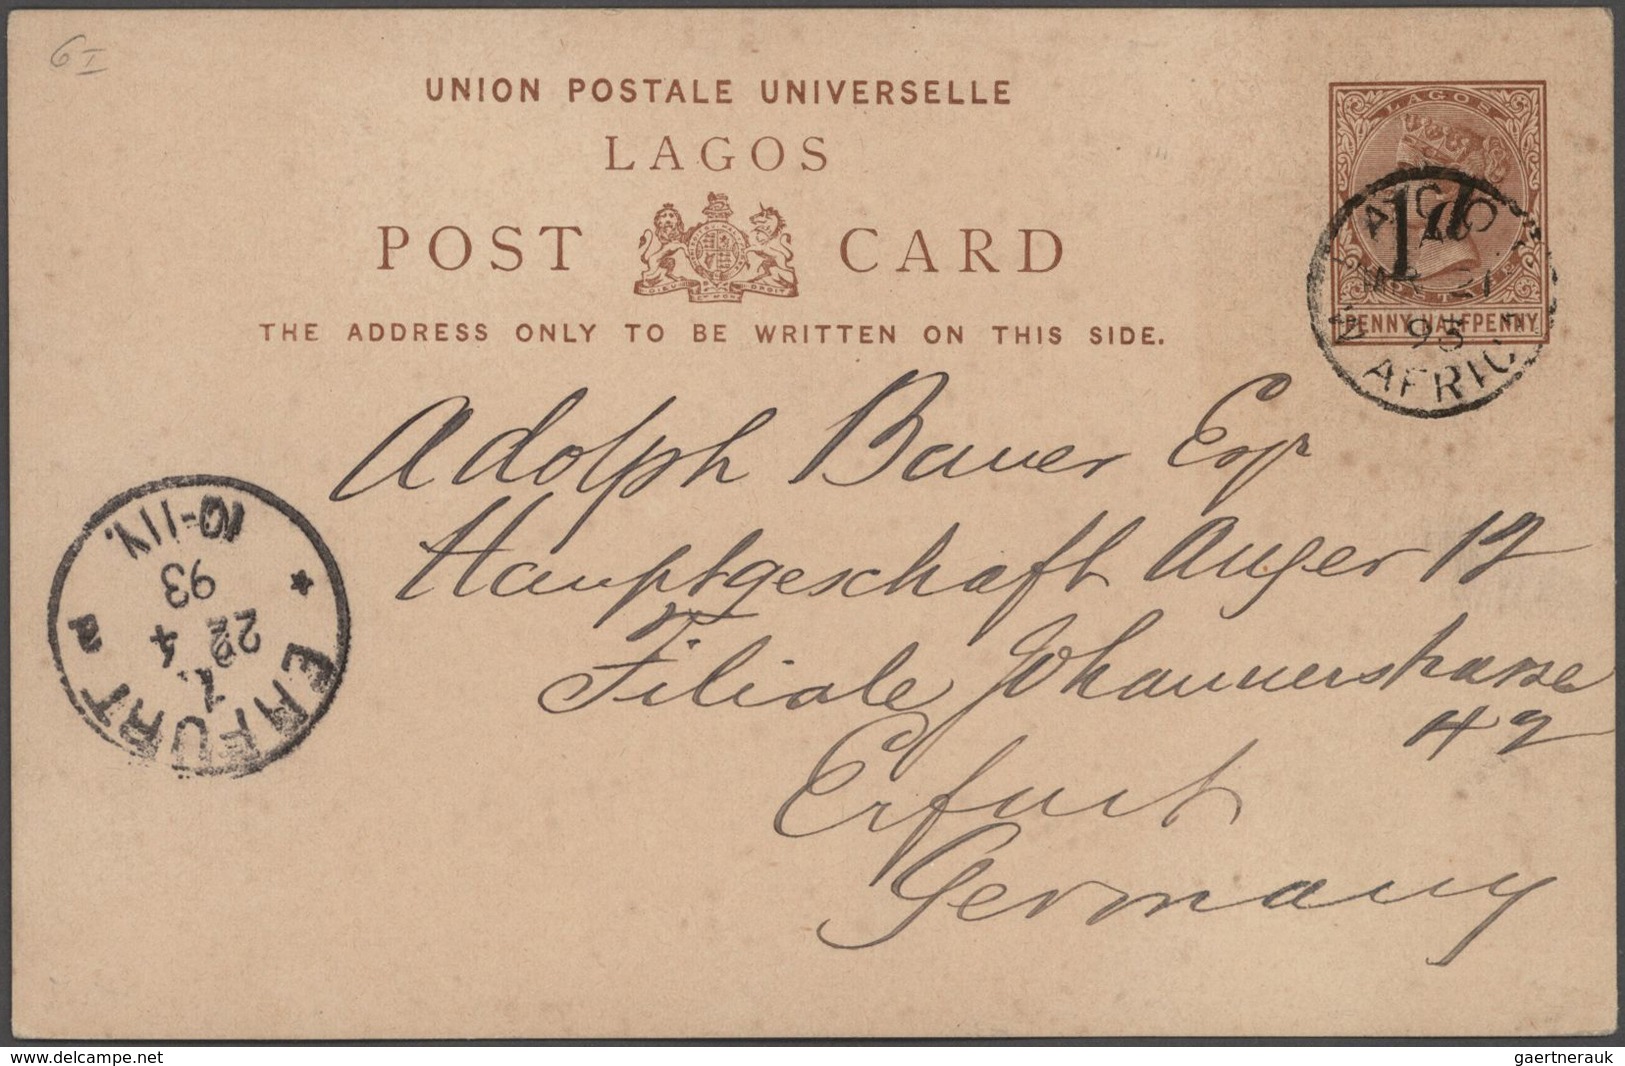 6 I
UNION POSTALE UNIVERSELLE
LAGOS
POST CARD
DIEU ET MON DROIT
THE ADDRESS ONLY TO BE WRITTEN ON THIS SIDE.
LAGOS
1d
PENNY HALFPENNY
LAGOS
MR 27
93
W AFRIC
Adolph Bauer Esqr
Hauptgeschaft Anger 12
Filiale Johannerstrasse
42
Erfurt
Germany
ERFURT
22 4
93
10-11N.
delcampe.net
gaertnerauk